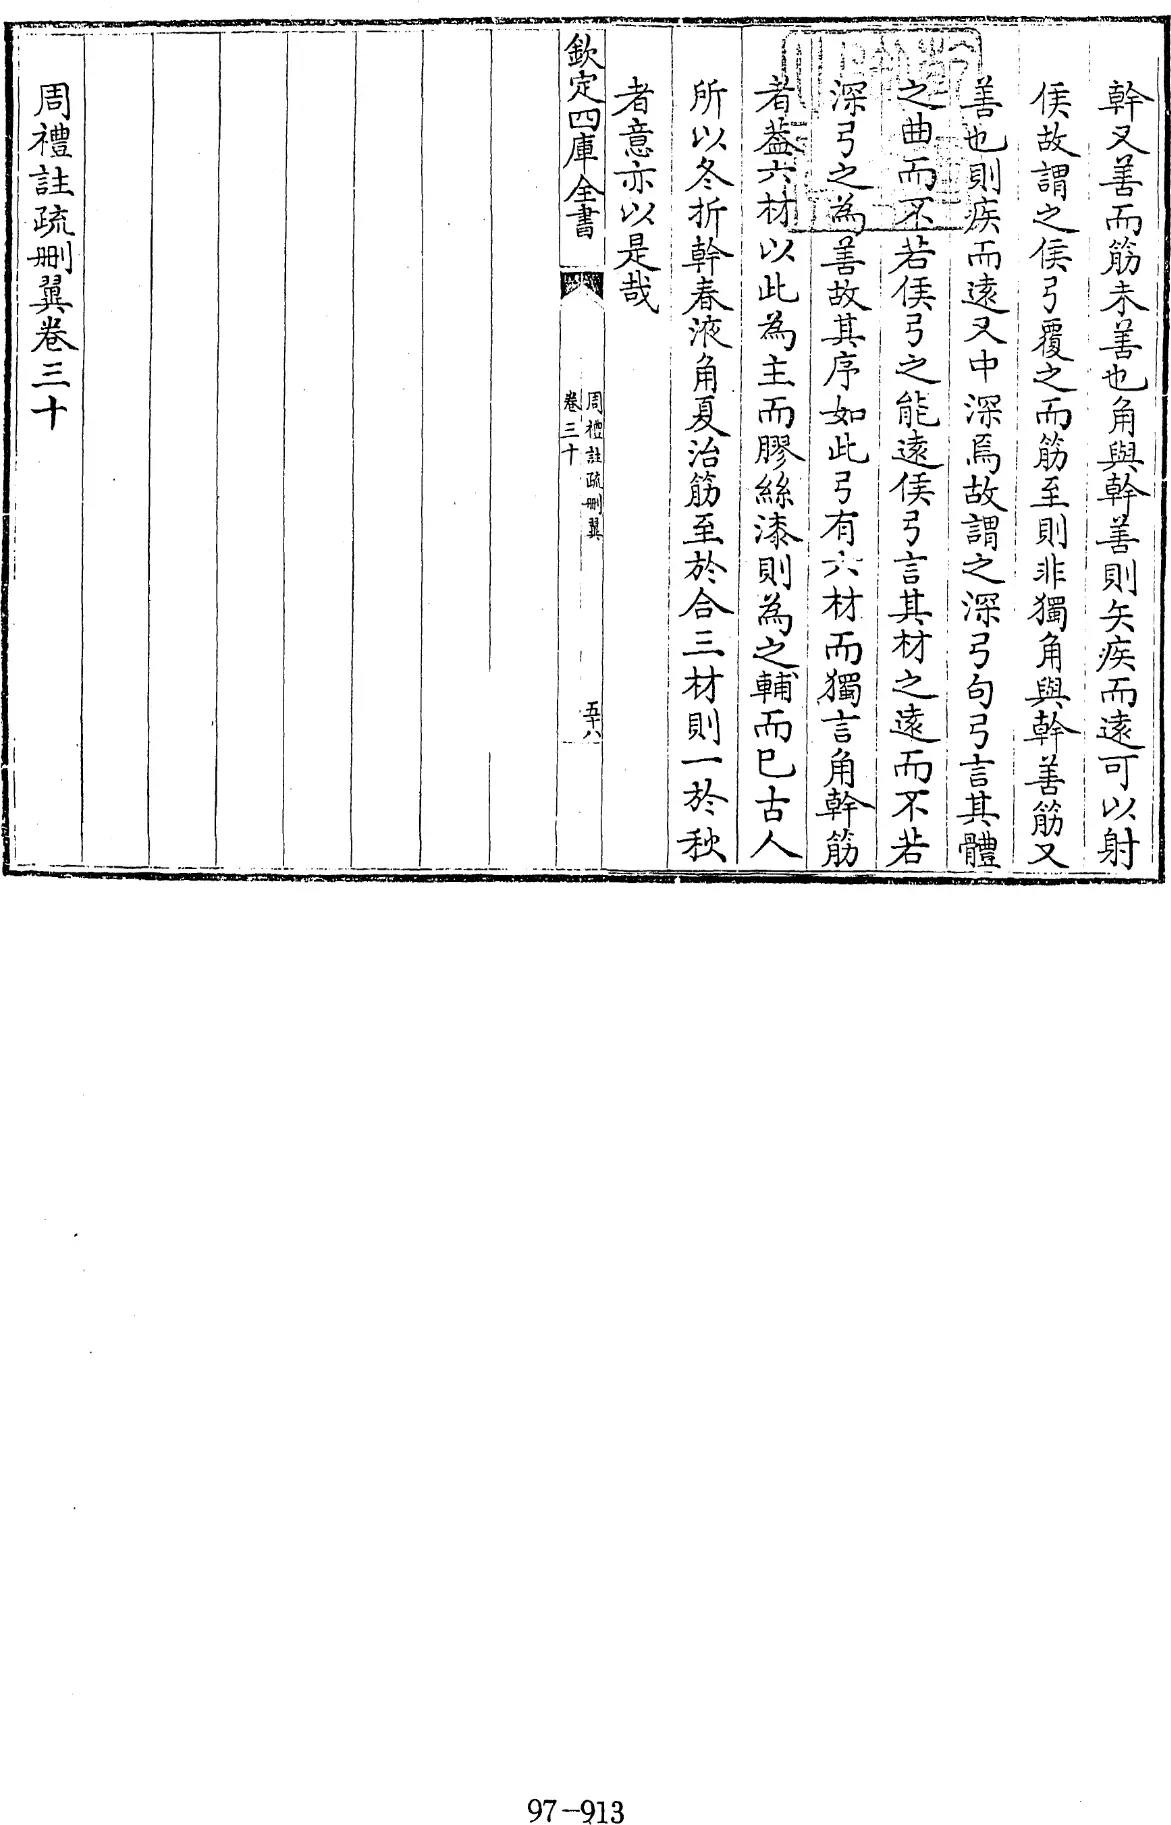 幹又善而筋未善也角與幹善則矢疾而遠可以射
侯故謂之侯弓覆之而筋至則非獨角與幹善筋又
善也則疾而遠又中深焉故謂之深弓句弓言其體
之曲而不若侯弓之能遠侯弓言其材之遠而不若
深弓之為善故其序如此弓有六材而獨言角幹筋
者葢六材以此為主而膠絲漆則為之輔而已古人
所以冬折幹春液角夏治筋至於合三材則一於秋
者意亦以是哉
欽定四庫全書
周禮註疏刪翼
卷三十
五十八
周禮註疏刪翼卷三十
97-913